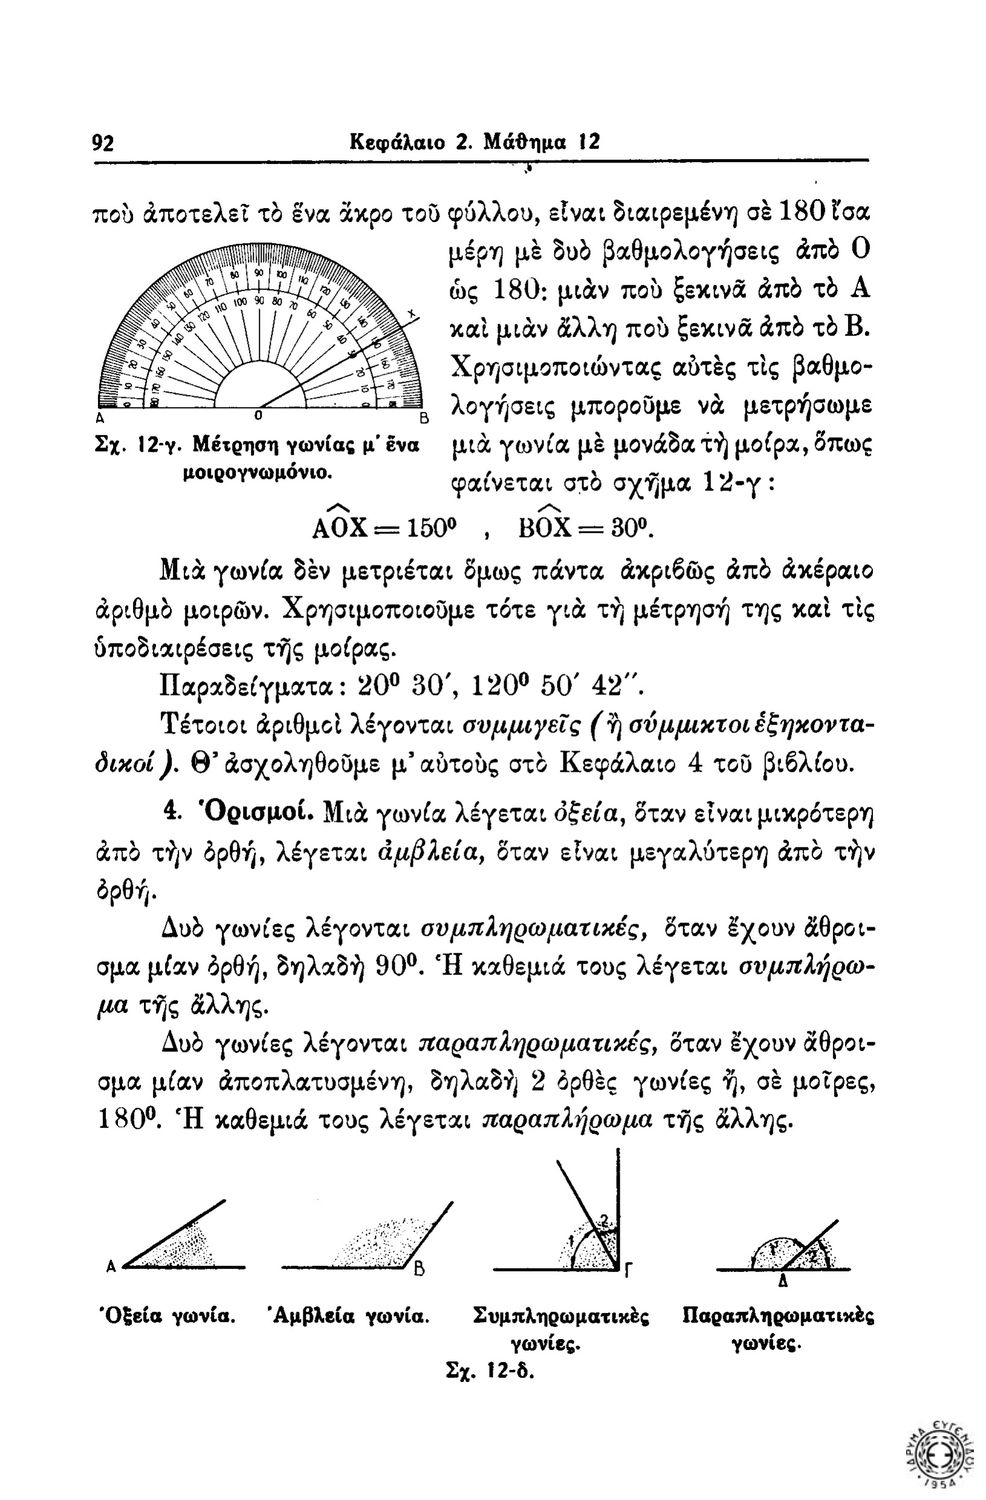 92 Κεφάλαιο 2. Μάθημα 12
ποὺ ἀποτελεῖ τὸ ἕνα ἄκρο τοῦ φύλλου, εἶναι διαιρεμένη σὲ 180 ἴσα
μέρη μὲ δυὸ βαθμολογήσεις ἀπὸ Ο
ὡς 180: μιὰν ποὺ ξεκινᾶ ἀπὸ τὸ Α
καὶ μιὰν ἄλλη ποὺ ξεκινᾶ ἀπὸ τὸ Β.
Χρησιμοποιώντας αὐτὲς τὶς βαθμο-
λογήσεις μποροῦμε νὰ μετρήσωμε
μιὰ γωνία μὲ μονάδα τὴ μοίρα, ὅπως
φαίνεται στὸ σχῆμα 12-γ :
Χ
Α Ο Β
Σχ. 12-γ. Μέτρηση γωνίας μ' ἕνα
μοιρογνωμόνιο.
ΑÔΧ = 150⁰ , ΒÔΧ = 30⁰.
Μιὰ γωνία δὲν μετριέται ὅμως πάντα ἀκριβῶς ἀπὸ ἀκέραιο
ἀριθμὸ μοιρῶν. Χρησιμοποιοῦμε τότε γιὰ τὴ μέτρησή της καὶ τὶς
ὑποδιαιρέσεις τῆς μοίρας.
Παραδείγματα : 20⁰ 30′, 120⁰ 50′ 42″.
Τέτοιοι ἀριθμοὶ λέγονται συμμιγεῖς (ἢ σύμμικτοι ἑξηκοντα-
δικοί). Θ' ἀσχοληθοῦμε μ' αὐτοὺς στὸ Κεφάλαιο 4 τοῦ βιβλίου.
4. Ὁρισμοί. Μιὰ γωνία λέγεται ὀξεία, ὅταν εἶναι μικρότερη
ἀπὸ τὴν ὀρθή, λέγεται ἀμβλεία, ὅταν εἶναι μεγαλύτερη ἀπὸ τὴν
ὀρθή.
Δυὸ γωνίες λέγονται συμπληρωματικές, ὅταν ἔχουν ἄθροι-
σμα μίαν ὀρθή, δηλαδὴ 90⁰. Ἡ καθεμιά τους λέγεται συμπλήρω-
μα τῆς ἄλλης.
Δυὸ γωνίες λέγονται παραπληρωματικές, ὅταν ἔχουν ἄθροι-
σμα μίαν ἀποπλατυσμένη, δηλαδὴ 2 ὀρθὲς γωνίες ἤ, σὲ μοῖρες,
180⁰. Ἡ καθεμιά τους λέγεται παραπλήρωμα τῆς ἄλλης.
Α Β 1 2 Γ 1 2 Δ
Ὀξεία γωνία. Ἀμβλεία γωνία. Συμπληρωματικὲς Παραπληρωματικὲς
γωνίες. γωνίες.
Σχ. 12-δ.
ΙΔΡΥΜΑ ΕΥΓΕΝΙΔΟΥ
1954